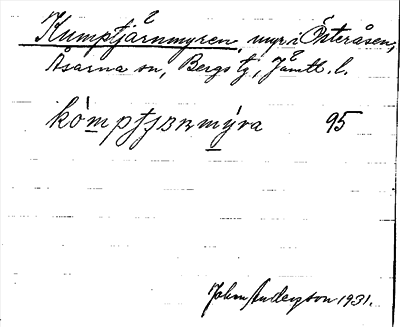 Kumptjärnmyren, myr i Österåsen,
Åsarna sn, Bergs tg, Jämtl. l.
kómptjɜnmýra 95
John Anderzson 1931.